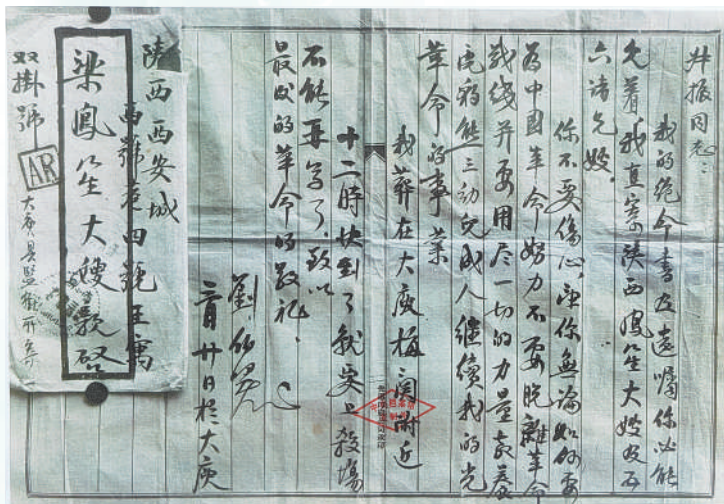 叔振同志:
我的绝命書及遺嘱你必能
見着,我直寄陝西鳳笙大嫂及五
六諸兄嫂。
你不要傷心,望你無論如何要
為中國革命努力不要脱離革命
战线并要用尽一切的力量教養
虎豹熊三幼兒成人继續我的光
革命的事業
我葬在大庾梅关附近
十二時快到了就要上殺場
不能再寫了,致以
最後的革命的敬礼、
劉伯堅
三月廿日於大庾
陝西西安城
四號王寓
梁鳳笙大嫂
双掛號
AR